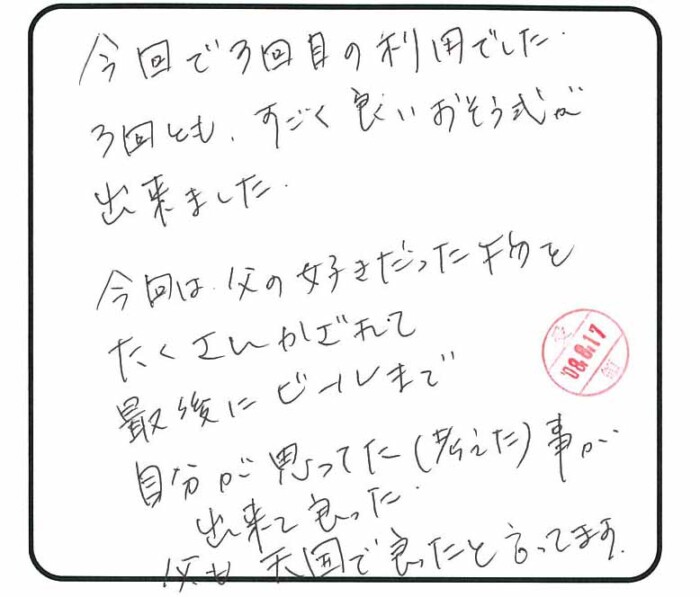 今回で3回目の利用でした.
3回とも、すごく良いおそう式が
出来ました.
今回は、父の好きだった物を
たくさんかざれて
最後にビールまで
自分が思ってた(考えた)事が
出来て良った.
父も天国で良ったと言ってます.
'08.8.17